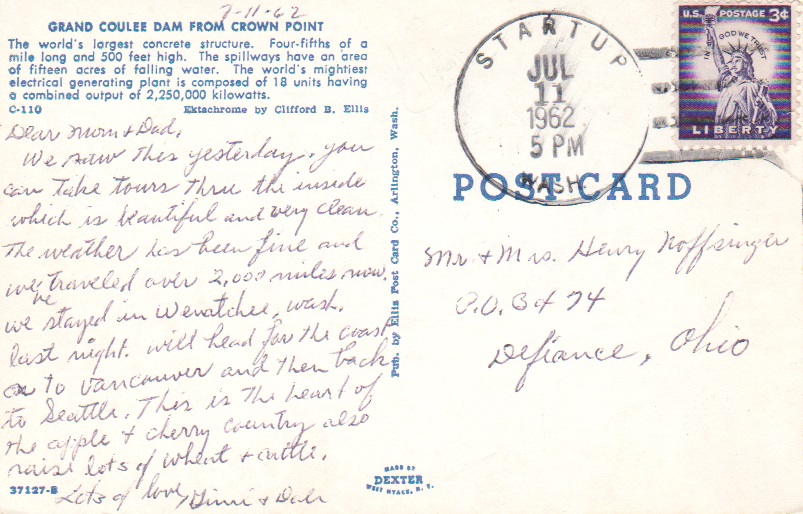 7-11-62
GRAND COULEE DAM FROM CROWN POINT
The world's largest concrete structure. Four-fifths of a
mile long and 500 feet high. The spillways have an area
of fifteen acres of falling water. The world's mightiest
electrical generating plant is composed of 18 units having
a combined output of 2,250,000 kilowatts.
C-110 Ektachrome by Clifford B. Ellis
Dear Mom & Dad,
We saw this yesterday. you
can take tours thru the inside
which is beautiful and very clean.
The weather has been fine and
we've traveled over 2,000 miles now.
we stayed in Wenatchee, Wash.
last night. will head for the coast
to Vancouver and then back
to Seattle. This is the heart of
the apple & cherry country also
raise lots of wheat & cattle.
Lots of love,
37127-B
Pub. by Ellis Post Card Co., Arlington, Wash.
MADE BY
DEXTER
WEST NYACK, N. Y.
STARTUP
JUL
11
1962
5 PM
WASH.
U.S. POSTAGE 3¢
IN GOD WE TRUST
LIBERTY
POST CARD
Mr + Mrs. Henry Noffsinger
P.O. Box 74
Defiance, Ohio